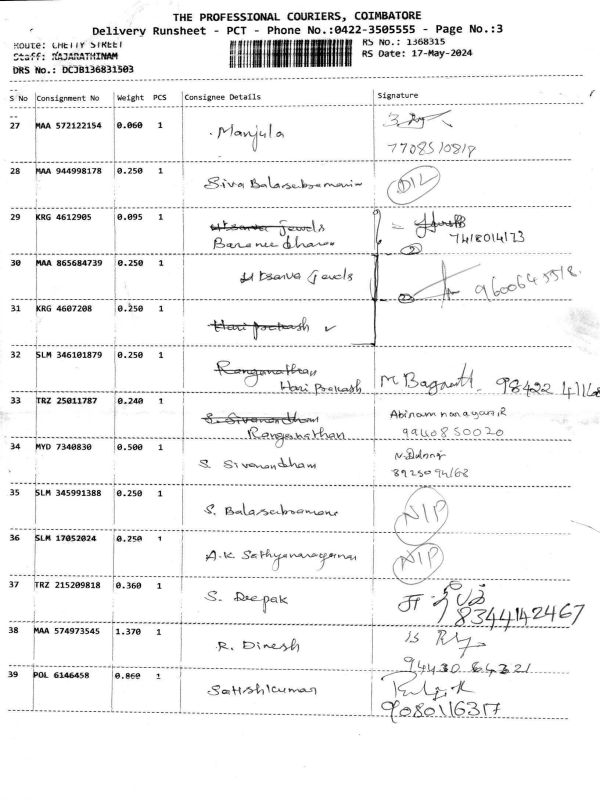 THE PROFESSIONAL COURIERS, COIMBATORE
Delivery Runsheet - PCT - Phone No.:0422-3505555 - Page No.:3
Route: CHETTY STREET
RS No.: 1368315
Staff: RAJARATHINAM
RS Date: 17-May-2024
DRS No.: DCJB136831503
S No Consignment No Weight PCS Consignee Details Signature
27 MAA 572122154 0.060 1 Manjula
7708510818
28 MAA 944998178 0.250 1 Siva Balasubramani D/L
29 KRG 4612905 0.095 1 Utsava Jewels
Baraneedharan 7418014123
30 MAA 865684739 0.250 1 Utsava Jewels
31 KRG 4607208 0.250 1 Hari Prakash
32 SLM 346101879 0.250 1 Ranganathan
Hari Prakash
33 TRZ 25011787 0.240 1 S. Sivanandham Abinam narayan.R
Ranganathan 9940850020
34 MYD 7340830 0.500 1 S. Sivanandham
8925094168
35 SLM 345991388 0.250 1 S. Balasubramani N/P
36 SLM 17052024 0.250 1 A.K Sathyanarayanan N/P
37 TRZ 215209818 0.360 1 S. Deepak
8344142467
38 MAA 574973545 1.370 1 R. Dinesh
94430 64321
39 POL 6146458 0.860 1 Satishkumar
9080116317